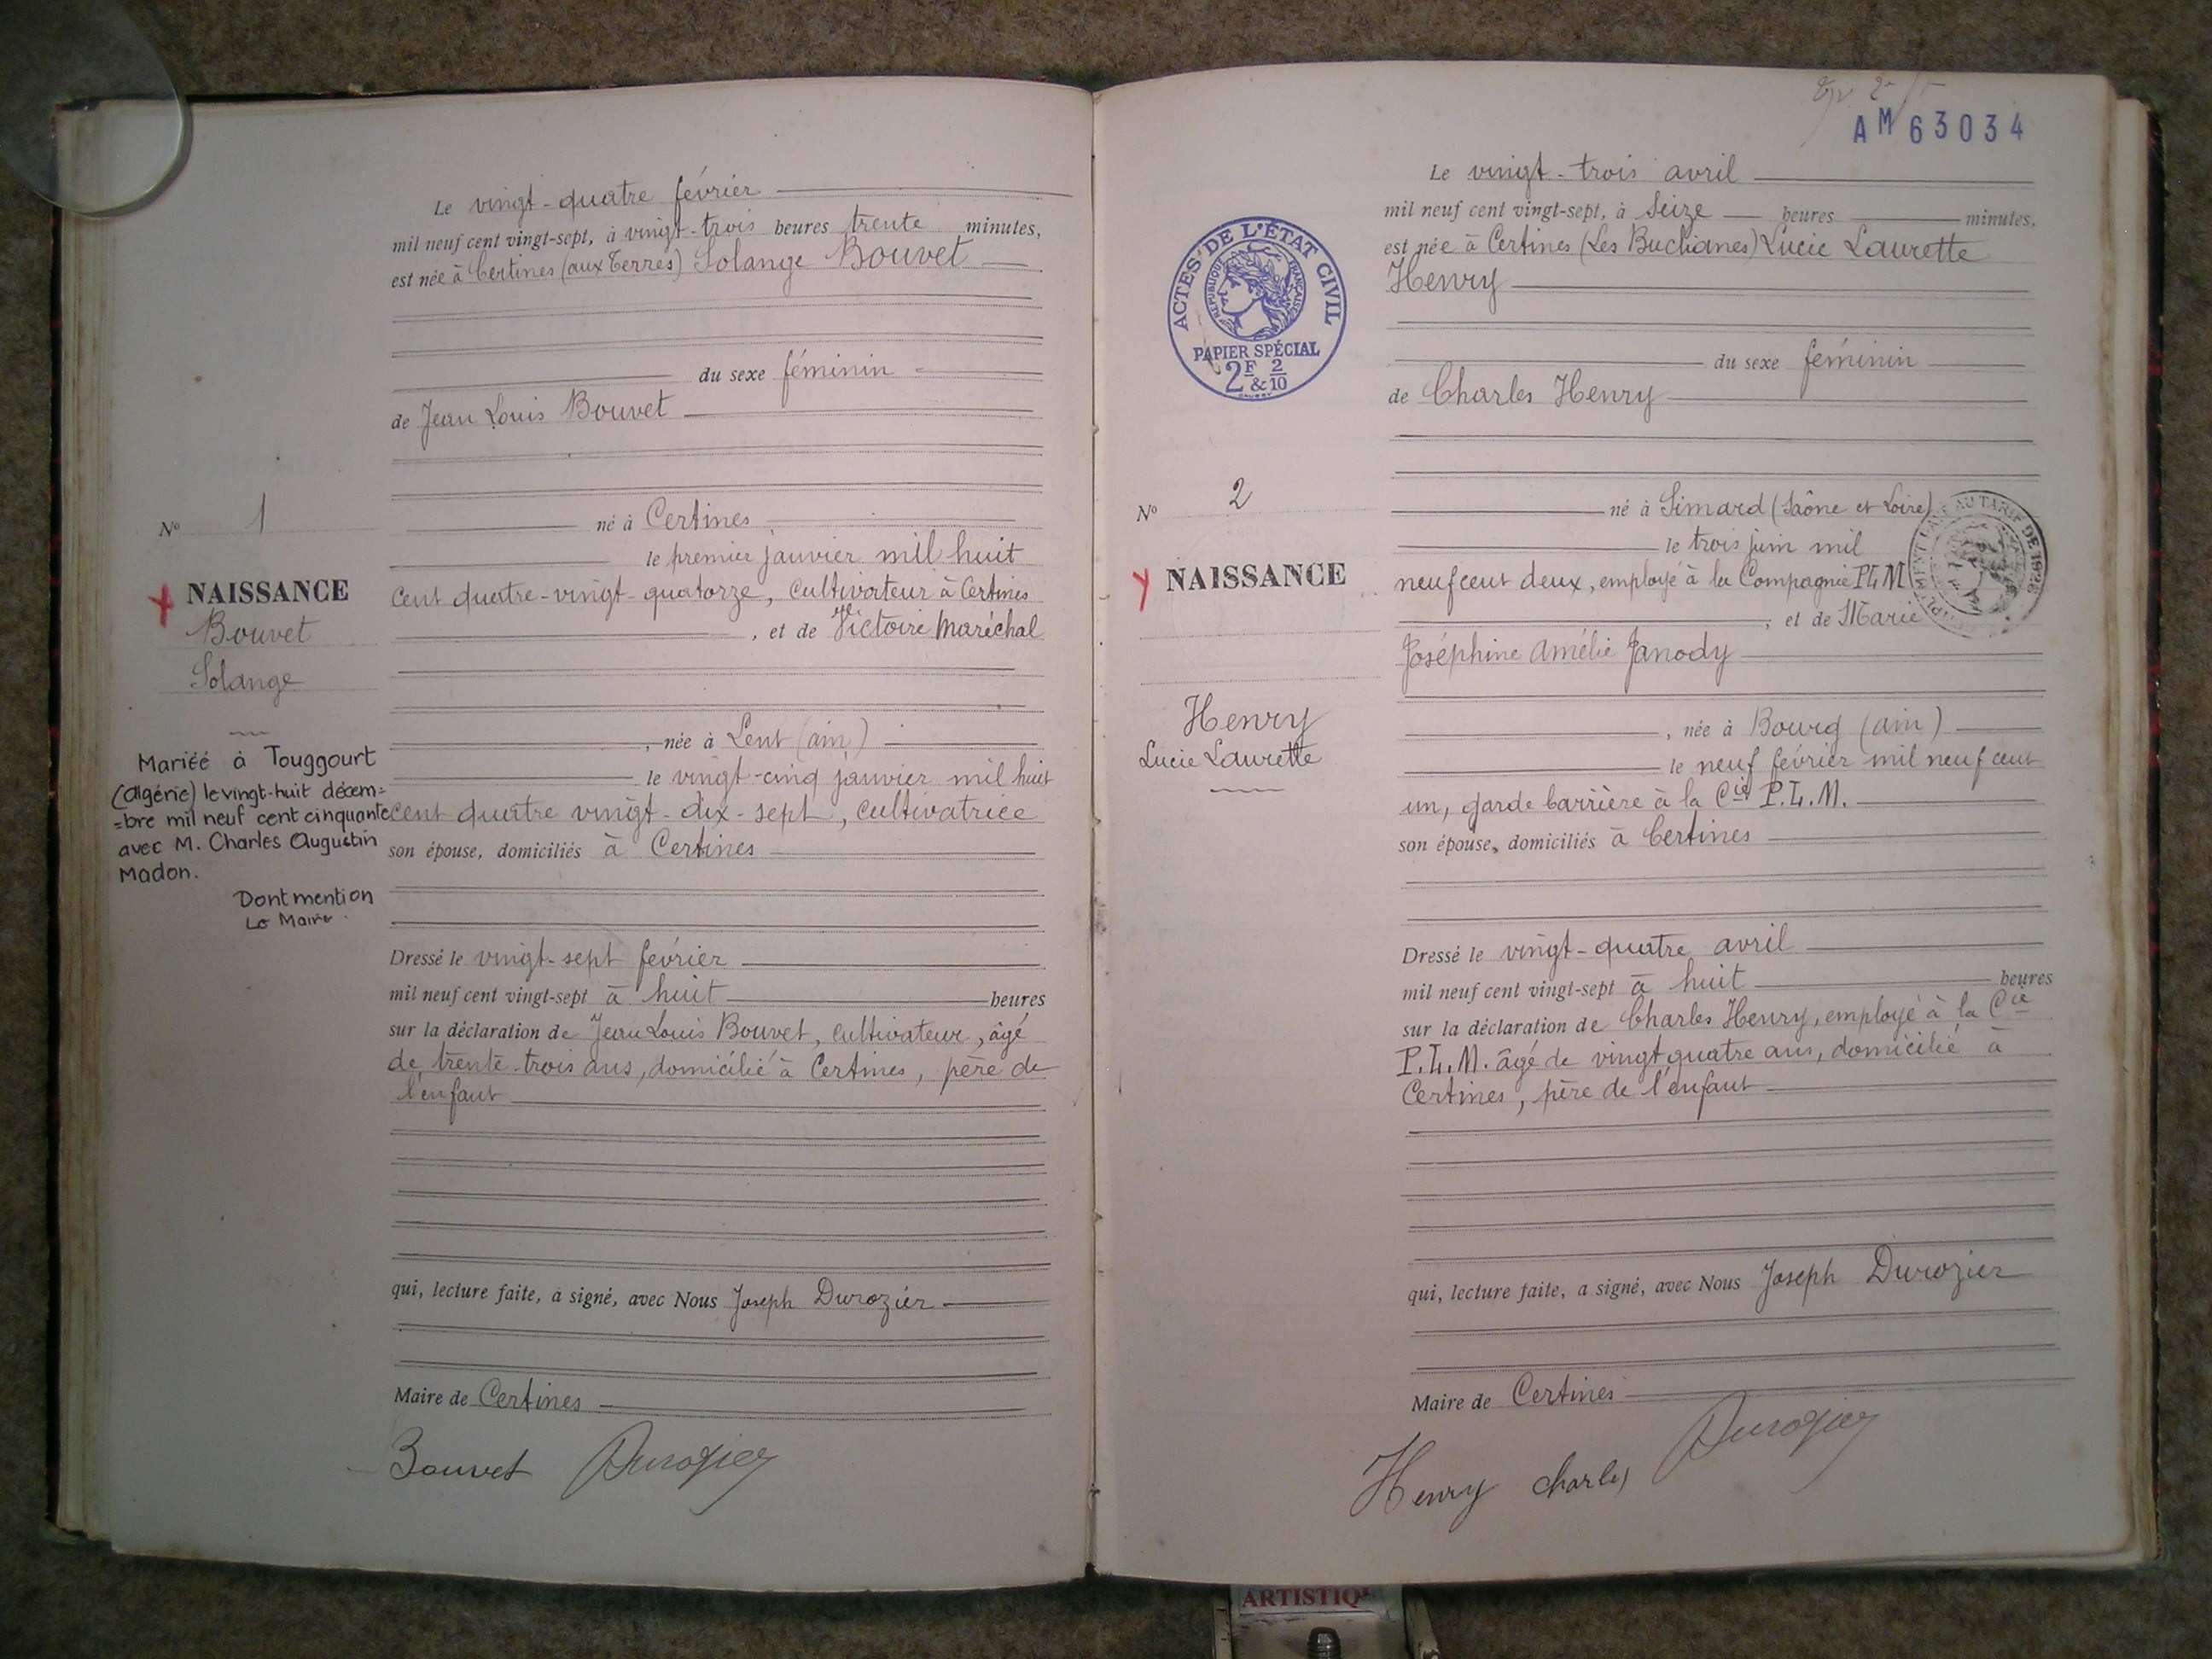 Le vingt-quatre février
mil neuf cent vingt-sept, à vingt-trois heures trente minutes,
est née à Certines (aux Terres) Solange Bouvet
du sexe féminin
de Jean Louis Bouvet
né à Certines
le premier janvier mil huit
cent quatre-vingt-quatorze, cultivateur à Certines
, et de Victoire Maréchal
, née à Lent (ain)
le vingt-cinq janvier mil huit
cent quatre vingt-dix-sept, cultivatrice
son épouse, domiciliés à Certines
Dressé le vingt-sept février
mil neuf cent vingt-sept à huit heures
sur la déclaration de Jean Louis Bouvet, cultivateur, âgé
de trente-trois ans, domicilié à Certines, père de
l'enfant
qui, lecture faite, a signé, avec Nous Joseph Durozier
Maire de Certines
Bouvet Durozier
N° 1
NAISSANCE
Bouvet
Solange
Mariéé à Touggourt
(Algérie) le vingt-huit décem=
=bre mil neuf cent cinquante
avec M. Charles Augustin
Madon.
Dont mention
Le Maire
AM 63034
Le vingt-trois avril
mil neuf cent vingt-sept, à Seize heures minutes,
est née à Certines (Les Buchanes) Lucie Laurette
Henry
du sexe féminin
de Charles Henry
né à Simard (Saône et Loire)
le trois juin mil
neuf cent deux, employé à la Compagnie P.L.M
, et de Marie
Joséphine Amélie Janody
, née à Bourg (ain)
le neuf février mil neuf cent
un, garde barrière à la Cie P.L.M.
son épouse, domiciliés à Certines
Dressé le vingt-quatre avril
mil neuf cent vingt-sept à huit heures
sur la déclaration de Charles Henry, employé à la Cie
P.L.M. âgé de vingt quatre ans, domicilié à
Certines, père de l'enfant
qui, lecture faite, a signé, avec Nous Joseph Durozier
Maire de Certines
Henry Charles Durozier
ACTES DE L'ÉTAT CIVIL
RÉPUBLIQUE FRANÇAISE
PAPIER SPÉCIAL
2F & 2/10
N° 2
NAISSANCE
Henry
Lucie Laurette
AU TARIF DE
ARTISTIQ